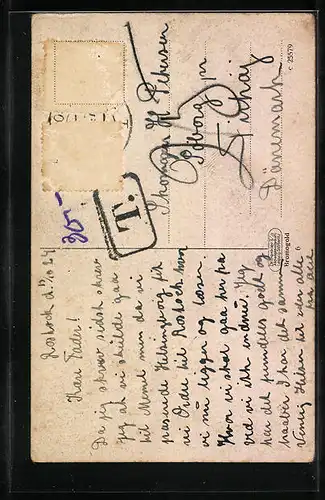 Rostock d. 10
Kære Fader!
Da jeg skrev sidst skrev
jeg at vi skulde gaa
til Memel men da vi
passerede Helsingborg fik
vi Ordre til Rostock hvor
vi nu ligger og losser.
Hvor vi skal gaa hen fra
ved vi ikke endnu. Jeg
har det fremdeles godt og
haaber I har det samme
Venlig Hilsen til eder alle
Thomsen
Petersen
pr
Dänemark
T.
30-
c 25579
Bromogold
6